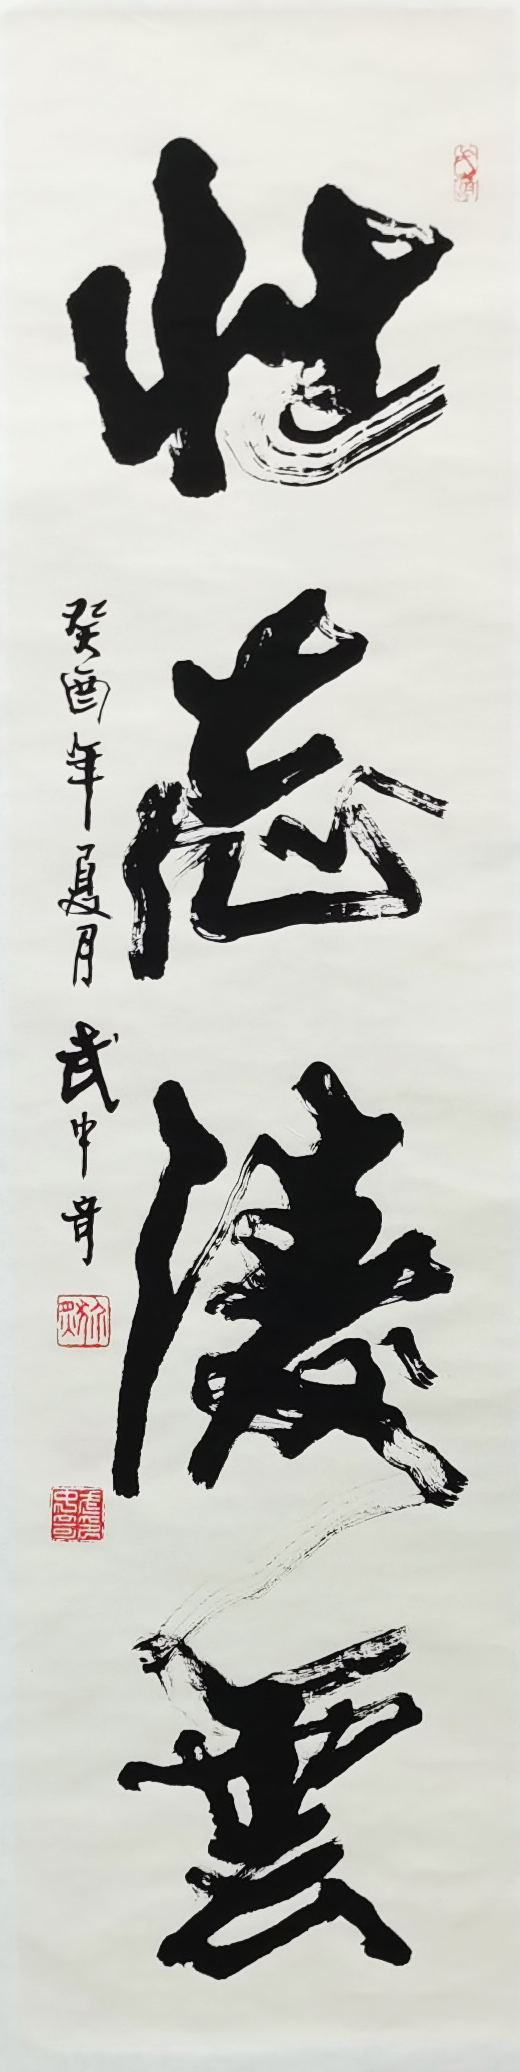 壮志凌雲
癸酉年夏月 武中奇